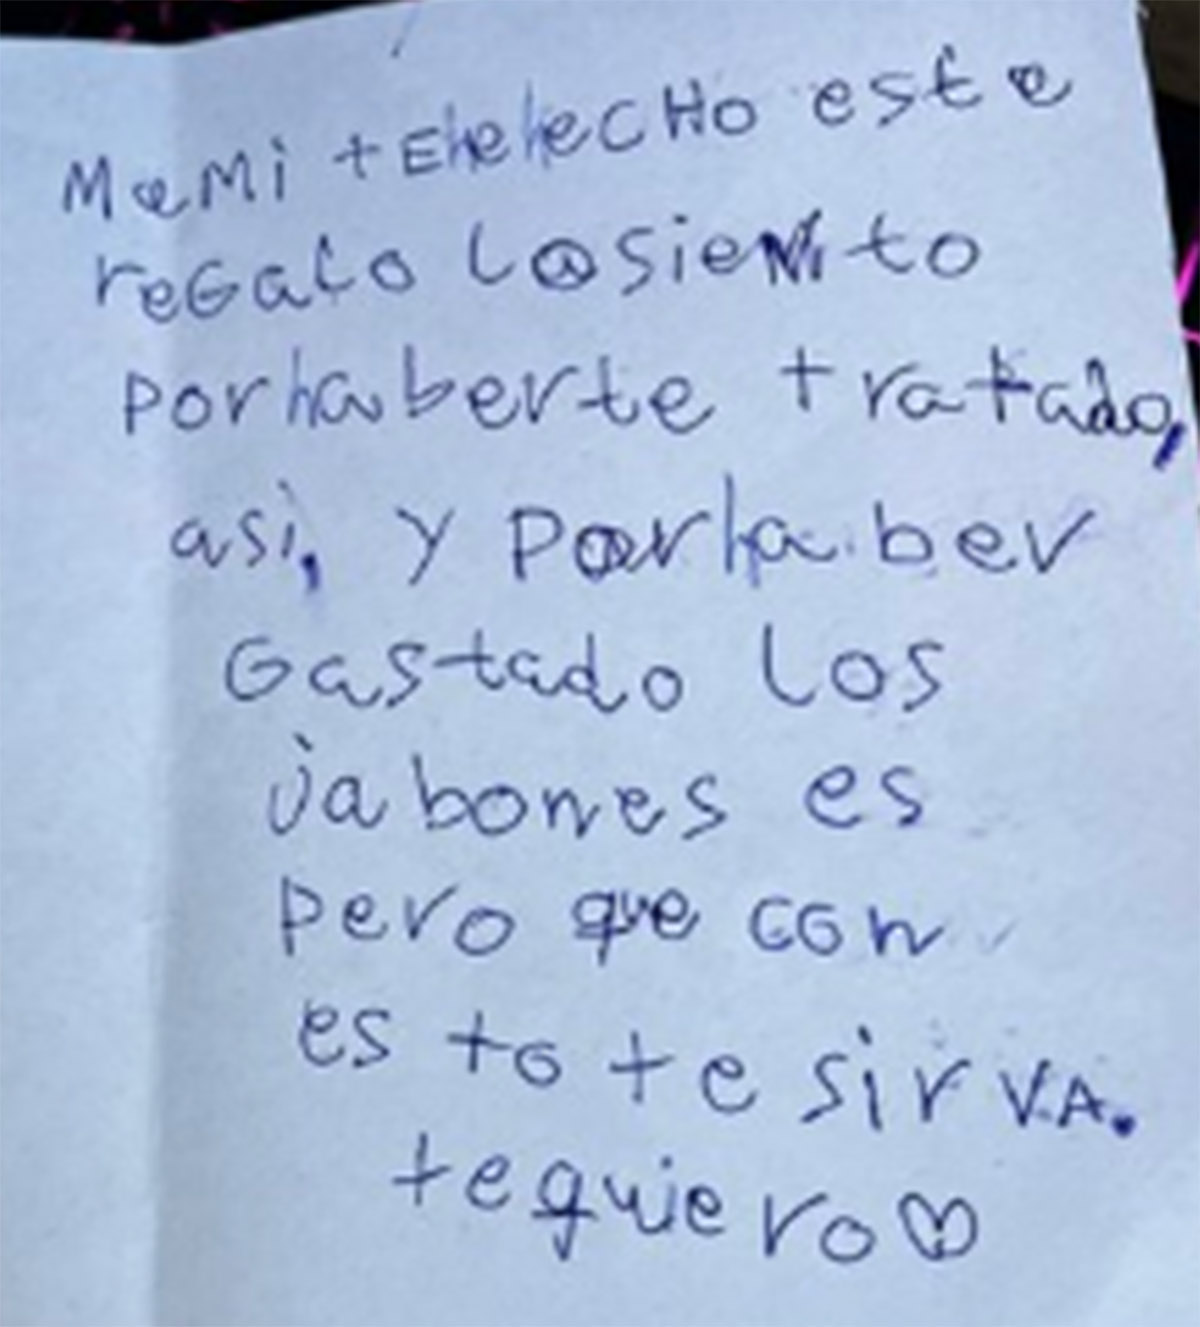 MaMi tEhehecHo este
reGalo losieNto
porhaberte tratado,
asi, y Porhaber
Gastado los
jabones es
pero que con
es to te sirVA.
tequiero♡